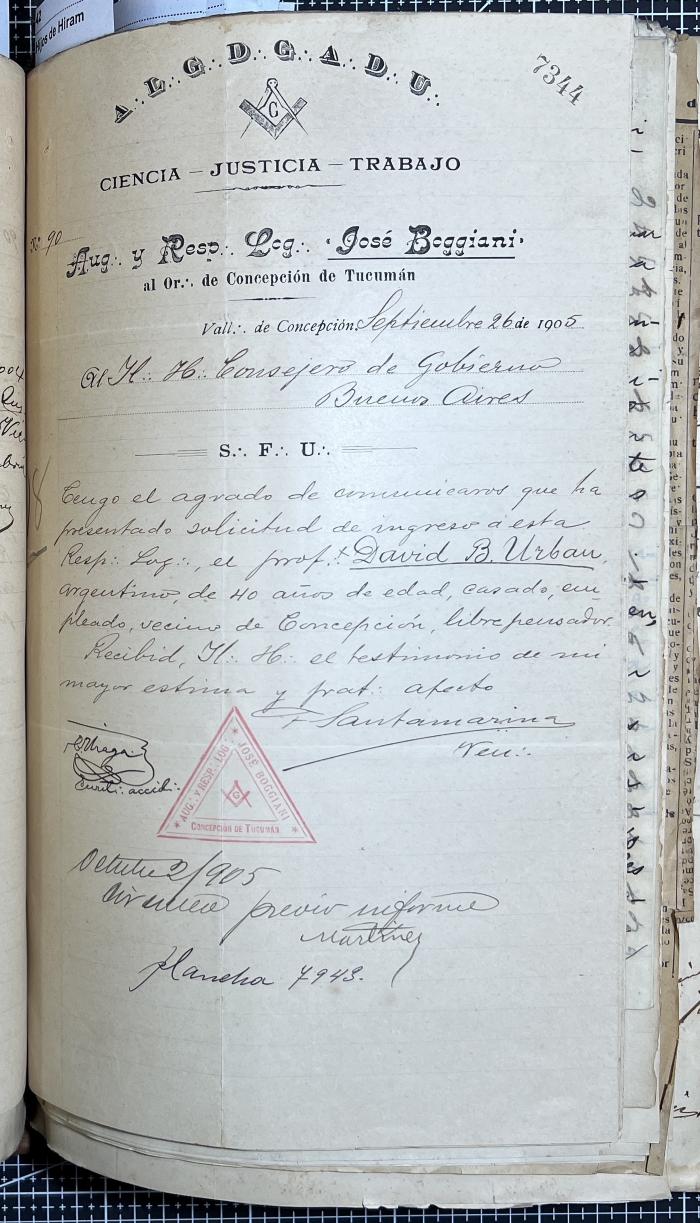 Hijos de Hiram
7344
A.·. L.·. G.·. D.·. G.·. A.·. D.·. U.·.
G
CIENCIA – JUSTICIA – TRABAJO
Nº 90
Aug.·. y Resp.·. Log.·. "José Boggiani"
al Or.·. de Concepción de Tucumán
Vall.·. de Concepción, Septiembre 26 de 1905
Al H.·. H.·. Consejero de Gobierno
Buenos Aires
S.·. F.·. U.·.
Tengo el agrado de comunicaros que ha
presentado solicitud de ingreso a esta
Resp.·. Log.·., el prof.·. David B. Urban,
argentino, de 40 años de edad, casado, em
pleado, vecino de Concepción, libre pensador.
Recibid, H.·. H.·. el testimonio de mi
mayor estima y frat.·. afecto
F Santamarina
Ven.·.
accid.·.
AUG.·. Y RESP.·. LOG.·. JOSÉ BOGGIANI
G
CONCEPCIÓN DE TUCUMÁN
Octubre 2/905
previo informe
Martinez
plancha 7943.